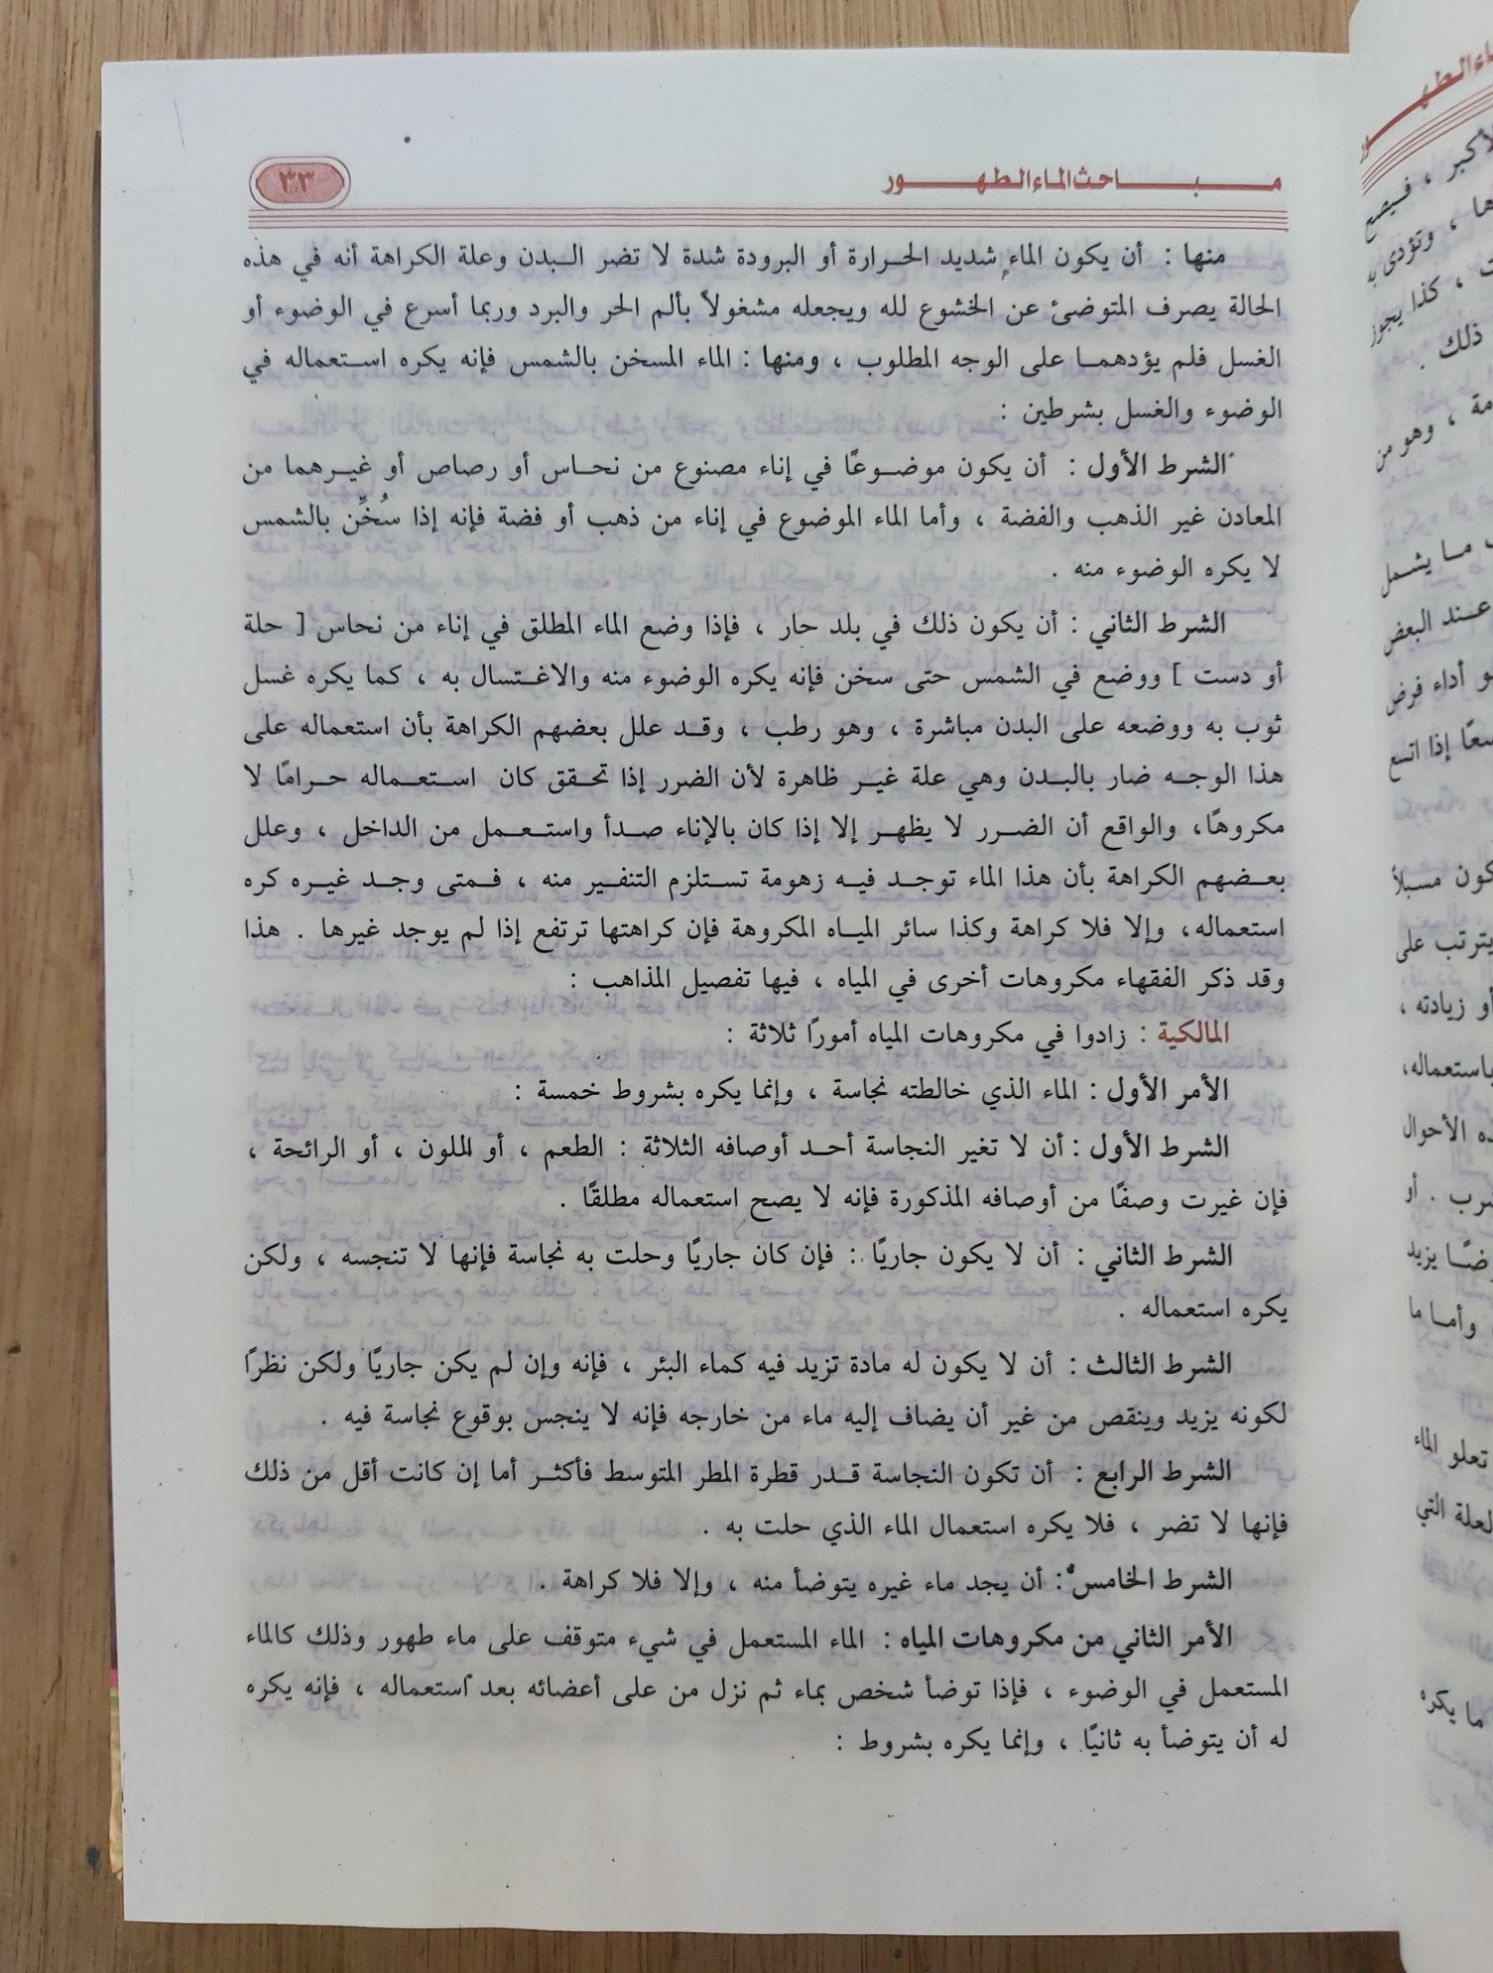 مباحث الماء الطهور
٣٣
منها : أن يكون الماء شديد الحرارة أو البرودة شدة لا تضر البدن وعلة الكراهة أنه في هذه
الحالة يصرف المتوضئ عن الخشوع لله ويجعله مشغولاً بألم الحر والبرد وربما أسرع في الوضوء أو
الغسل فلم يؤدهما على الوجه المطلوب ، ومنها : الماء المسخن بالشمس فإنه يكره استعماله في
الوضوء والغسل بشرطين :
الشرط الأول : أن يكون موضوعًا في إناء مصنوع من نحاس أو رصاص أو غيرهما من
المعادن غير الذهب والفضة ، وأما الماء الموضوع في إناء من ذهب أو فضة فإنه إذا سُخِّن بالشمس
لا يكره الوضوء منه .
الشرط الثاني : أن يكون ذلك في بلد حار ، فإذا وضع الماء المطلق في إناء من نحاس [ حلة
أو دست ] ووضع في الشمس حتى سخن فإنه يكره الوضوء منه والاغتسال به ، كما يكره غسل
ثوب به ووضعه على البدن مباشرة ، وهو رطب ، وقد علل بعضهم الكراهة بأن استعماله على
هذا الوجه ضار بالبدن وهي علة غير ظاهرة لأن الضرر إذا تحقق كان استعماله حرامًا لا
مكروهًا، والواقع أن الضرر لا يظهر إلا إذا كان بالإناء صدأ واستعمل من الداخل ، وعلل
بعضهم الكراهة بأن هذا الماء توجد فيه زهومة تستلزم التنفير منه ، فمتى وجد غيره كره
استعماله، وإلا فلا كراهة وكذا سائر المياه المكروهة فإن كراهتها ترتفع إذا لم يوجد غيرها . هذا
وقد ذكر الفقهاء مكروهات أخرى في المياه ، فيها تفصيل المذاهب :
المالكية : زادوا في مكروهات المياه أمورًا ثلاثة :
الأمر الأول : الماء الذي خالطته نجاسة ، وإنما يكره بشروط خمسة :
الشرط الأول : أن لا تغير النجاسة أحد أوصافه الثلاثة : الطعم ، أو للملون ، أو الرائحة ،
فإن غيرت وصفًا من أوصافه المذكورة فإنه لا يصح استعماله مطلقًا .
الشرط الثاني : أن لا يكون جاريًا : فإن كان جاريًا وحلت به نجاسة فإنها لا تنجسه ، ولكن
يكره استعماله .
الشرط الثالث : أن لا يكون له مادة تزيد فيه كماء البئر ، فإنه وإن لم يكن جاريًا ولكن نظرًا
لكونه يزيد وينقص من غير أن يضاف إليه ماء من خارجه فإنه لا ينجس بوقوع نجاسة فيه .
الشرط الرابع : أن تكون النجاسة قدر قطرة المطر المتوسط فأكثر أما إن كانت أقل من ذلك
فإنها لا تضر ، فلا يكره استعمال الماء الذي حلت به .
الشرط الخامس : أن يجد ماء غيره يتوضأ منه ، وإلا فلا كراهة .
الأمر الثاني من مكروهات المياه : الماء المستعمل في شيء متوقف على ماء طهور وذلك كالماء
المستعمل في الوضوء ، فإذا توضأ شخص بماء ثم نزل من على أعضائه بعد استعماله ، فإنه يكره
له أن يتوضأ به ثانيًا ، وإنما يكره بشروط :
الأكبر ، فيصح
ها ، وتؤدى به
ت ، كذا يجوز
ذلك .
مة ، وهو من
ما يشمل
عند البعض
و أداء فرض
سعًا إذا اتسع
كون مسبلاً
يترتب على
أو زيادته ،
باستعماله،
ذه الأحوال
شرب . أو
ضًا يزيد
وأما ما
تعلو الماء
لعلة التي
ما يكره